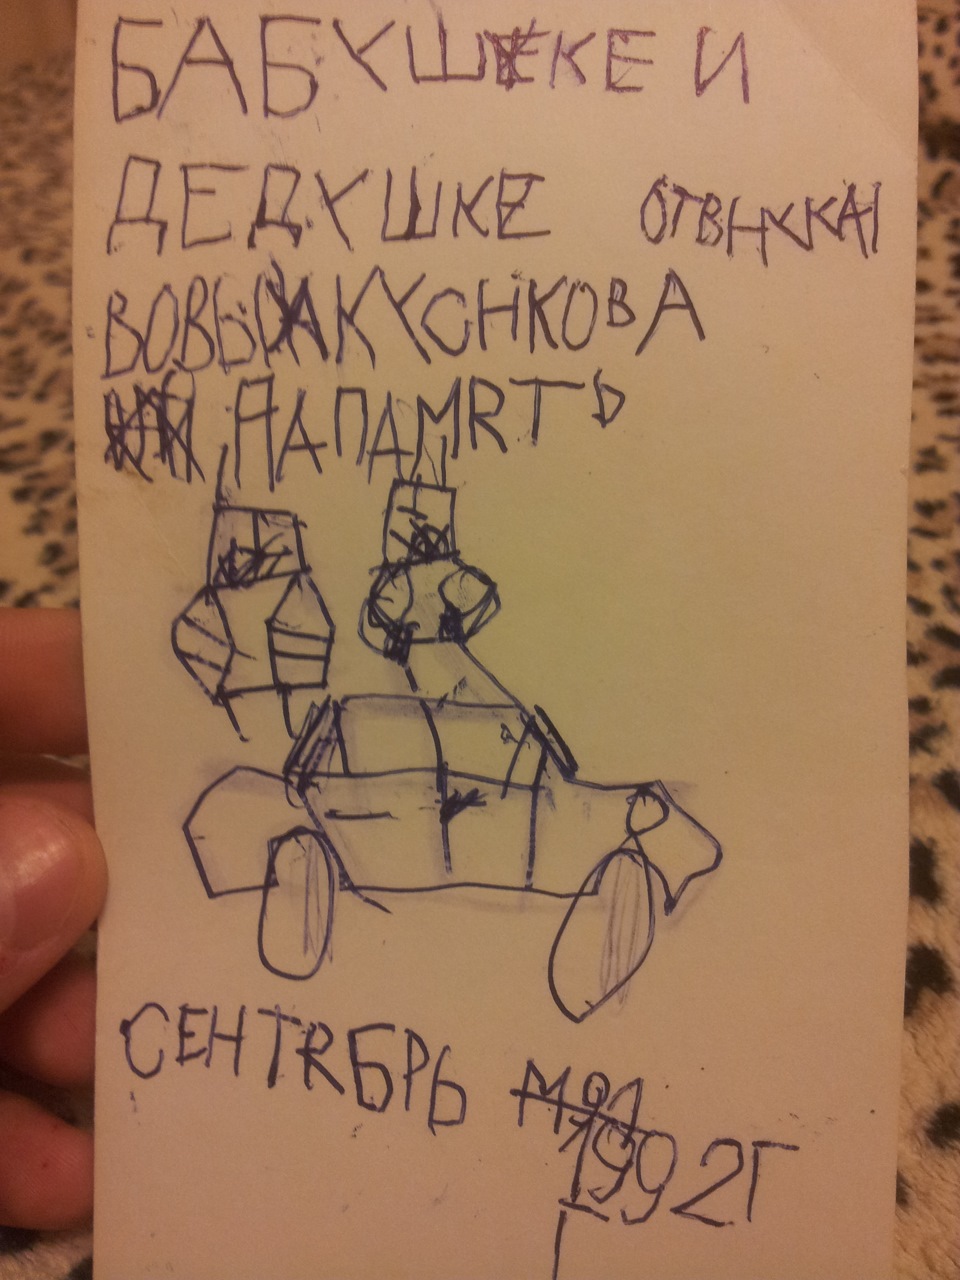 БАБУШКЕ И
ДЕДУШКЕ ОТ ВНУКА
ВОВЫ КУСНКОВА
НА ПАМЯТЬ
СЕНТЯБРЬ
1992Г